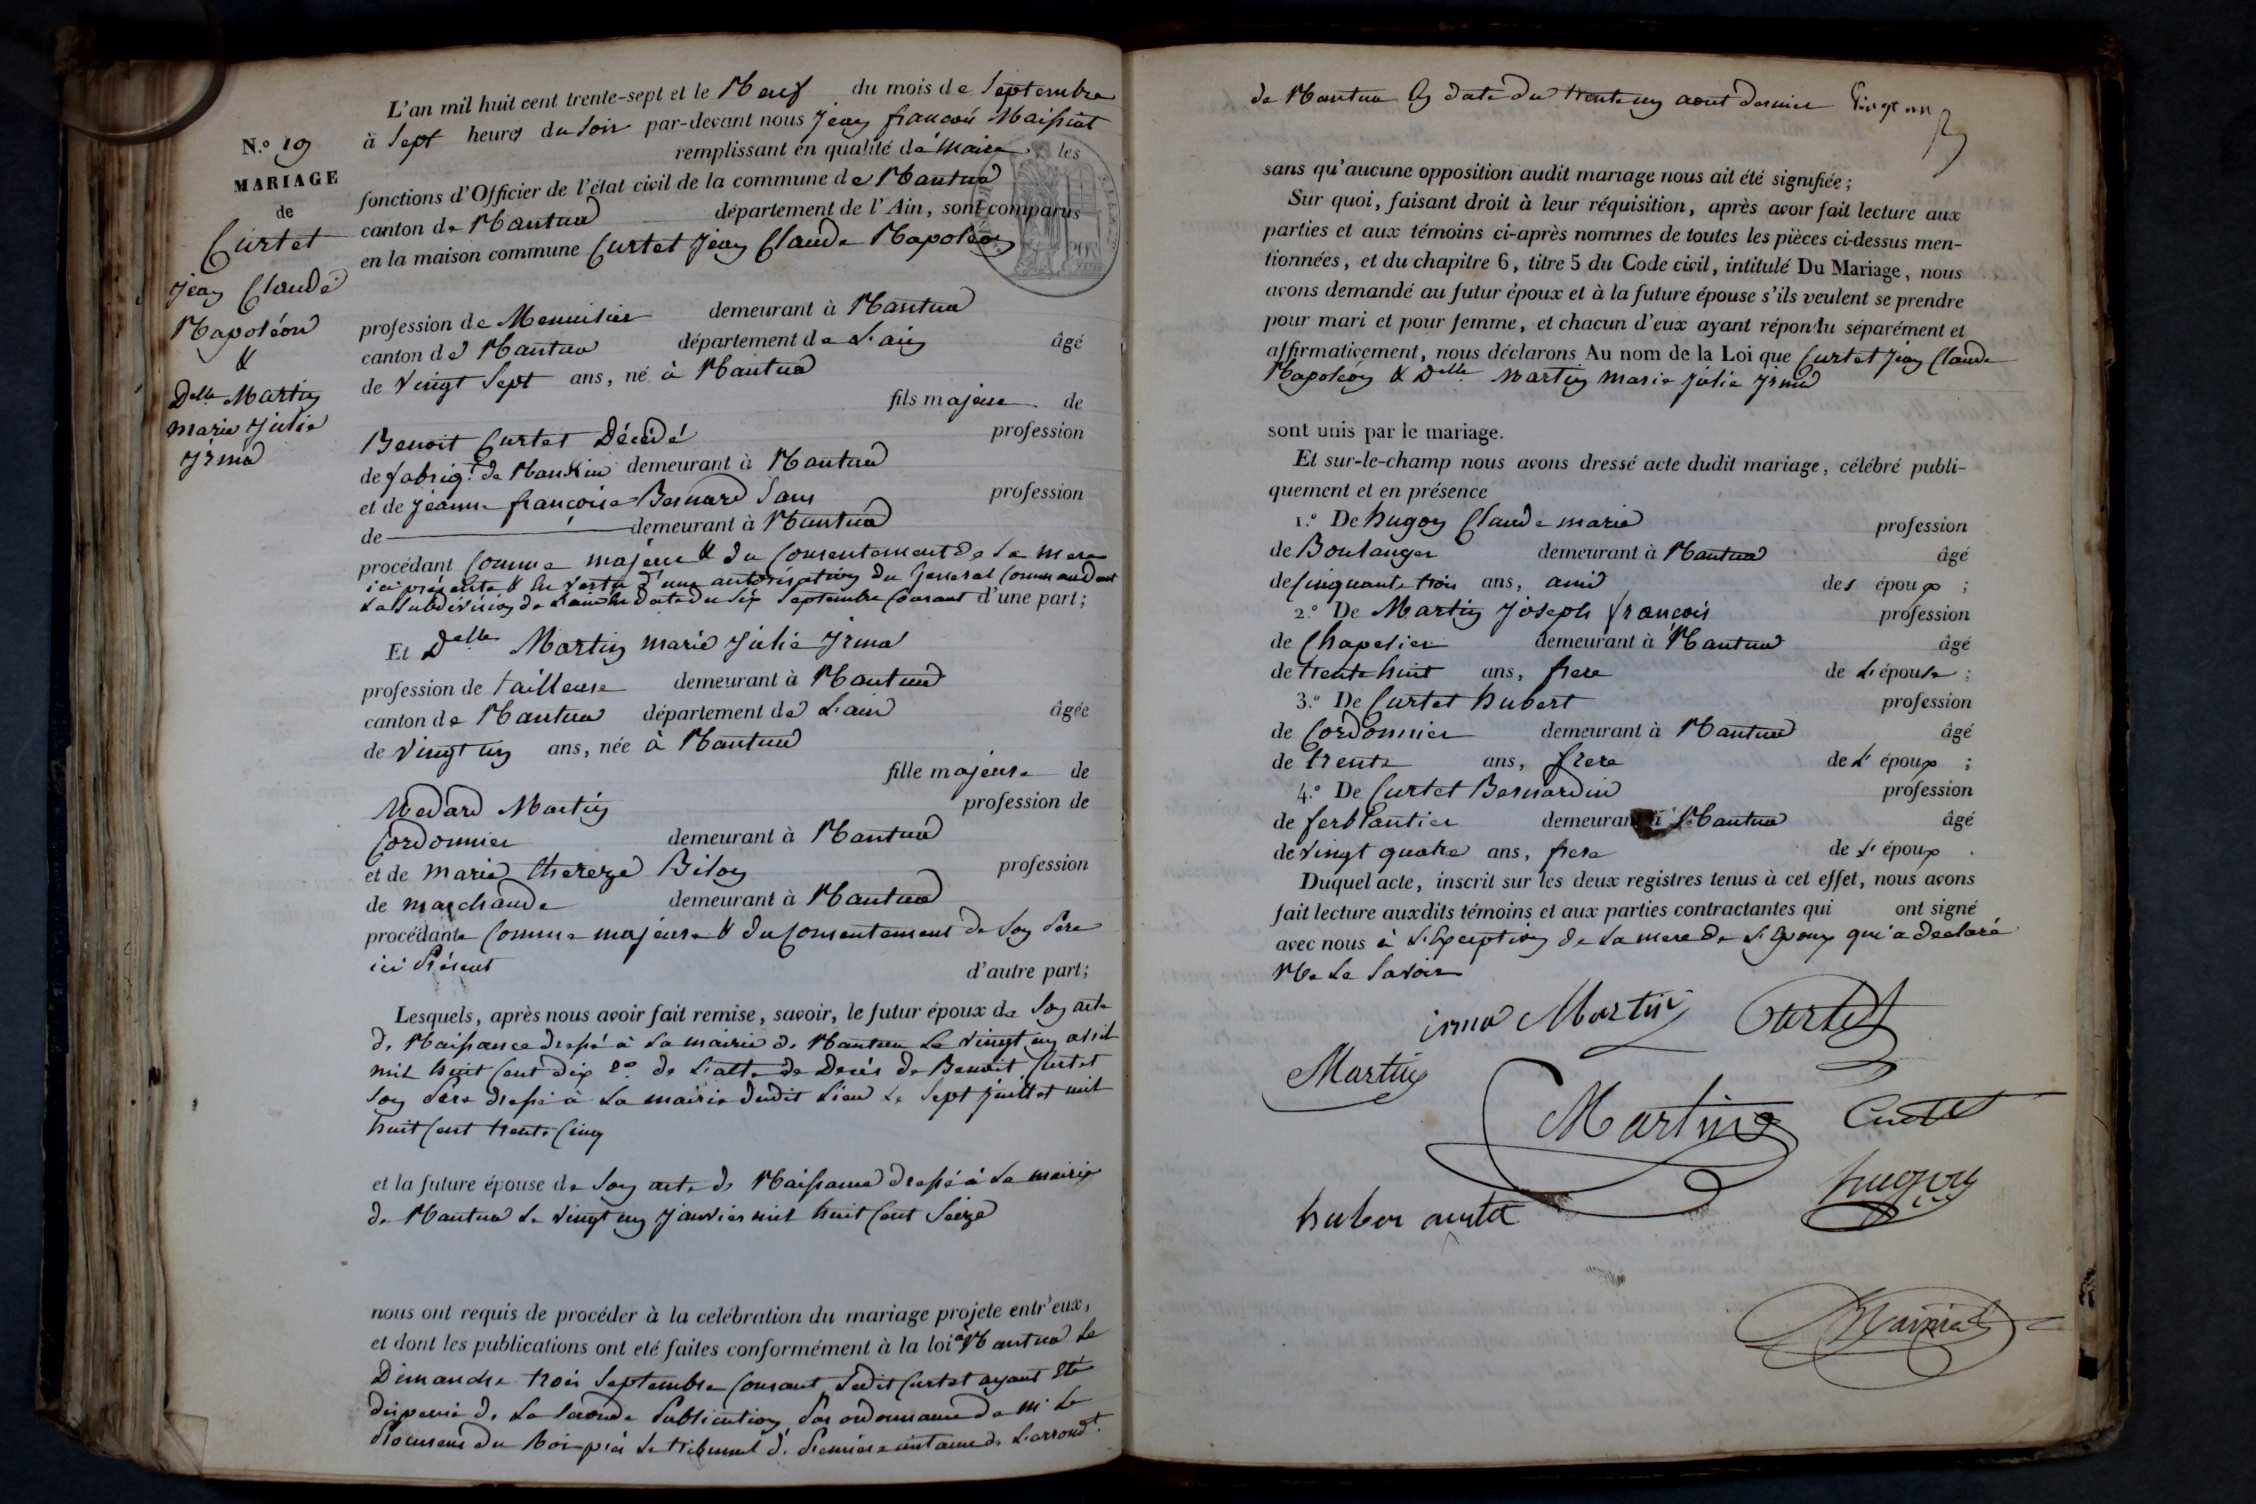 N.° 19
MARIAGE
de
Curtet
Jean Claude
Napoléon
&
Delle Martin
marie Julie
Irma
L'an mil huit cent trente-sept et le Neuf du mois de Septembre
à Sept heures du soir par-devant nous Jean françois Maissiat
remplissant en qualité de Maire les
fonctions d'Officier de l'état civil de la commune de Nantua
canton de Nantua département de l'Ain, sont comparus
en la maison commune Curtet Jean Claude Napoléon
profession de Menuisier demeurant à Nantua
canton de Nantua département de L'ain âgé
de vingt Sept ans, né à Nantua
fils majeur de
Benoit Curtet Décédé profession
de fabriqt. de Nankin demeurant à Nantua
et de Jeanne françoise Bernard Sans profession
de demeurant à Nantua
procédant Comme majeur & du Consentement de La mere
ici présente & En Vertu d'une autorisation du General Commandant
La Subdivision de L'ain En date du Six Septembre Courant d'une part;
Et Delle Martin marie Julie Irma
profession de tailleuse demeurant à Nantua
canton de Nantua département de L'ain âgée
de Vingt un ans, née à Nantua
fille majeure de
Medard Martin profession de
Cordonnier demeurant à Nantua
et de mariethereze Biloy profession
de marchande demeurant à Nantua
procédante Comme majeure & du Consentement de Son Père
ici Présent d'autre part;
Lesquels, après nous avoir fait remise, savoir, le futur époux de Son acte
de Naissance dressé à La mairie de Nantua Le vingt un avril
mil huit Cent dix 2° de L'acte de Décès de Benoit Curtet
Son Père dressé à La mairie dudit Lieu Le Sept Juillet mil
huit Cent trente Cinq
et la future épouse de Son acte de Naissance dressé à La mairie
de Nantua Le vingt un Janvier mil huit Cent Seize
nous ont requis de procéder à la celébration du mariage projeté entr'eux,
et dont les publications ont eté faites conformément à la loi à Nantua Le
Dimanche trois Septembre Courant Ledit Curtet ayant Eté
dispensé de La Seconde Publication Par ordonnance de Mr Le
Procureur du Roi près Le tribunal de Première instance de L'arrondt.
de Nantua En date du trente un aout dernier
sans qu'aucune opposition audit mariage nous ait été signifiée;
Sur quoi, faisant droit à leur réquisition, après avoir fait lecture aux
parties et aux témoins ci-après nommés de toutes les pièces ci-dessus men-
tionnées, et du chapitre 6, titre 5 du Code civil, intitulé Du Mariage, nous
avons demandé au futur époux et à la future épouse s'ils veulent se prendre
pour mari et pour femme, et chacun d'eux ayant répondu séparément et
affirmativement, nous déclarons Au nom de la Loi que Curtet Jean Claude
Napoléon & Delle Martin Marie Julie Irma
sont unis par le mariage.
Et sur-le-champ nous avons dressé acte dudit mariage, célébré publi-
quement et en présence
1.° De hugon Claude marie profession
de Boulanger demeurant à Nantua âgé
de Cinquante trois ans, ami des époux ;
2.° De Martin Joseph françois profession
de Chapelier demeurant à Nantua âgé
de trente huit ans, frere de L'épouse ;
3.° De Curtet hubert profession
de Cordonnier demeurant à Nantua âgé
de trente ans, frere de L'époux ;
4.° De Curtet Bernardin profession
de ferblantier demeurant à Nantua âgé
de vingt quatre ans, frere de L'époux .
Duquel acte, inscrit sur les deux registres tenus à cet effet, nous avons
fait lecture auxdits témoins et aux parties contractantes qui ont signé
avec nous à L'Exception de La mere de L'Epoux qui a declaré
Ne Le Savoir
irma Martin Curtet
Martin
Martin Curtet
hugon
huber curtet
Maissiat